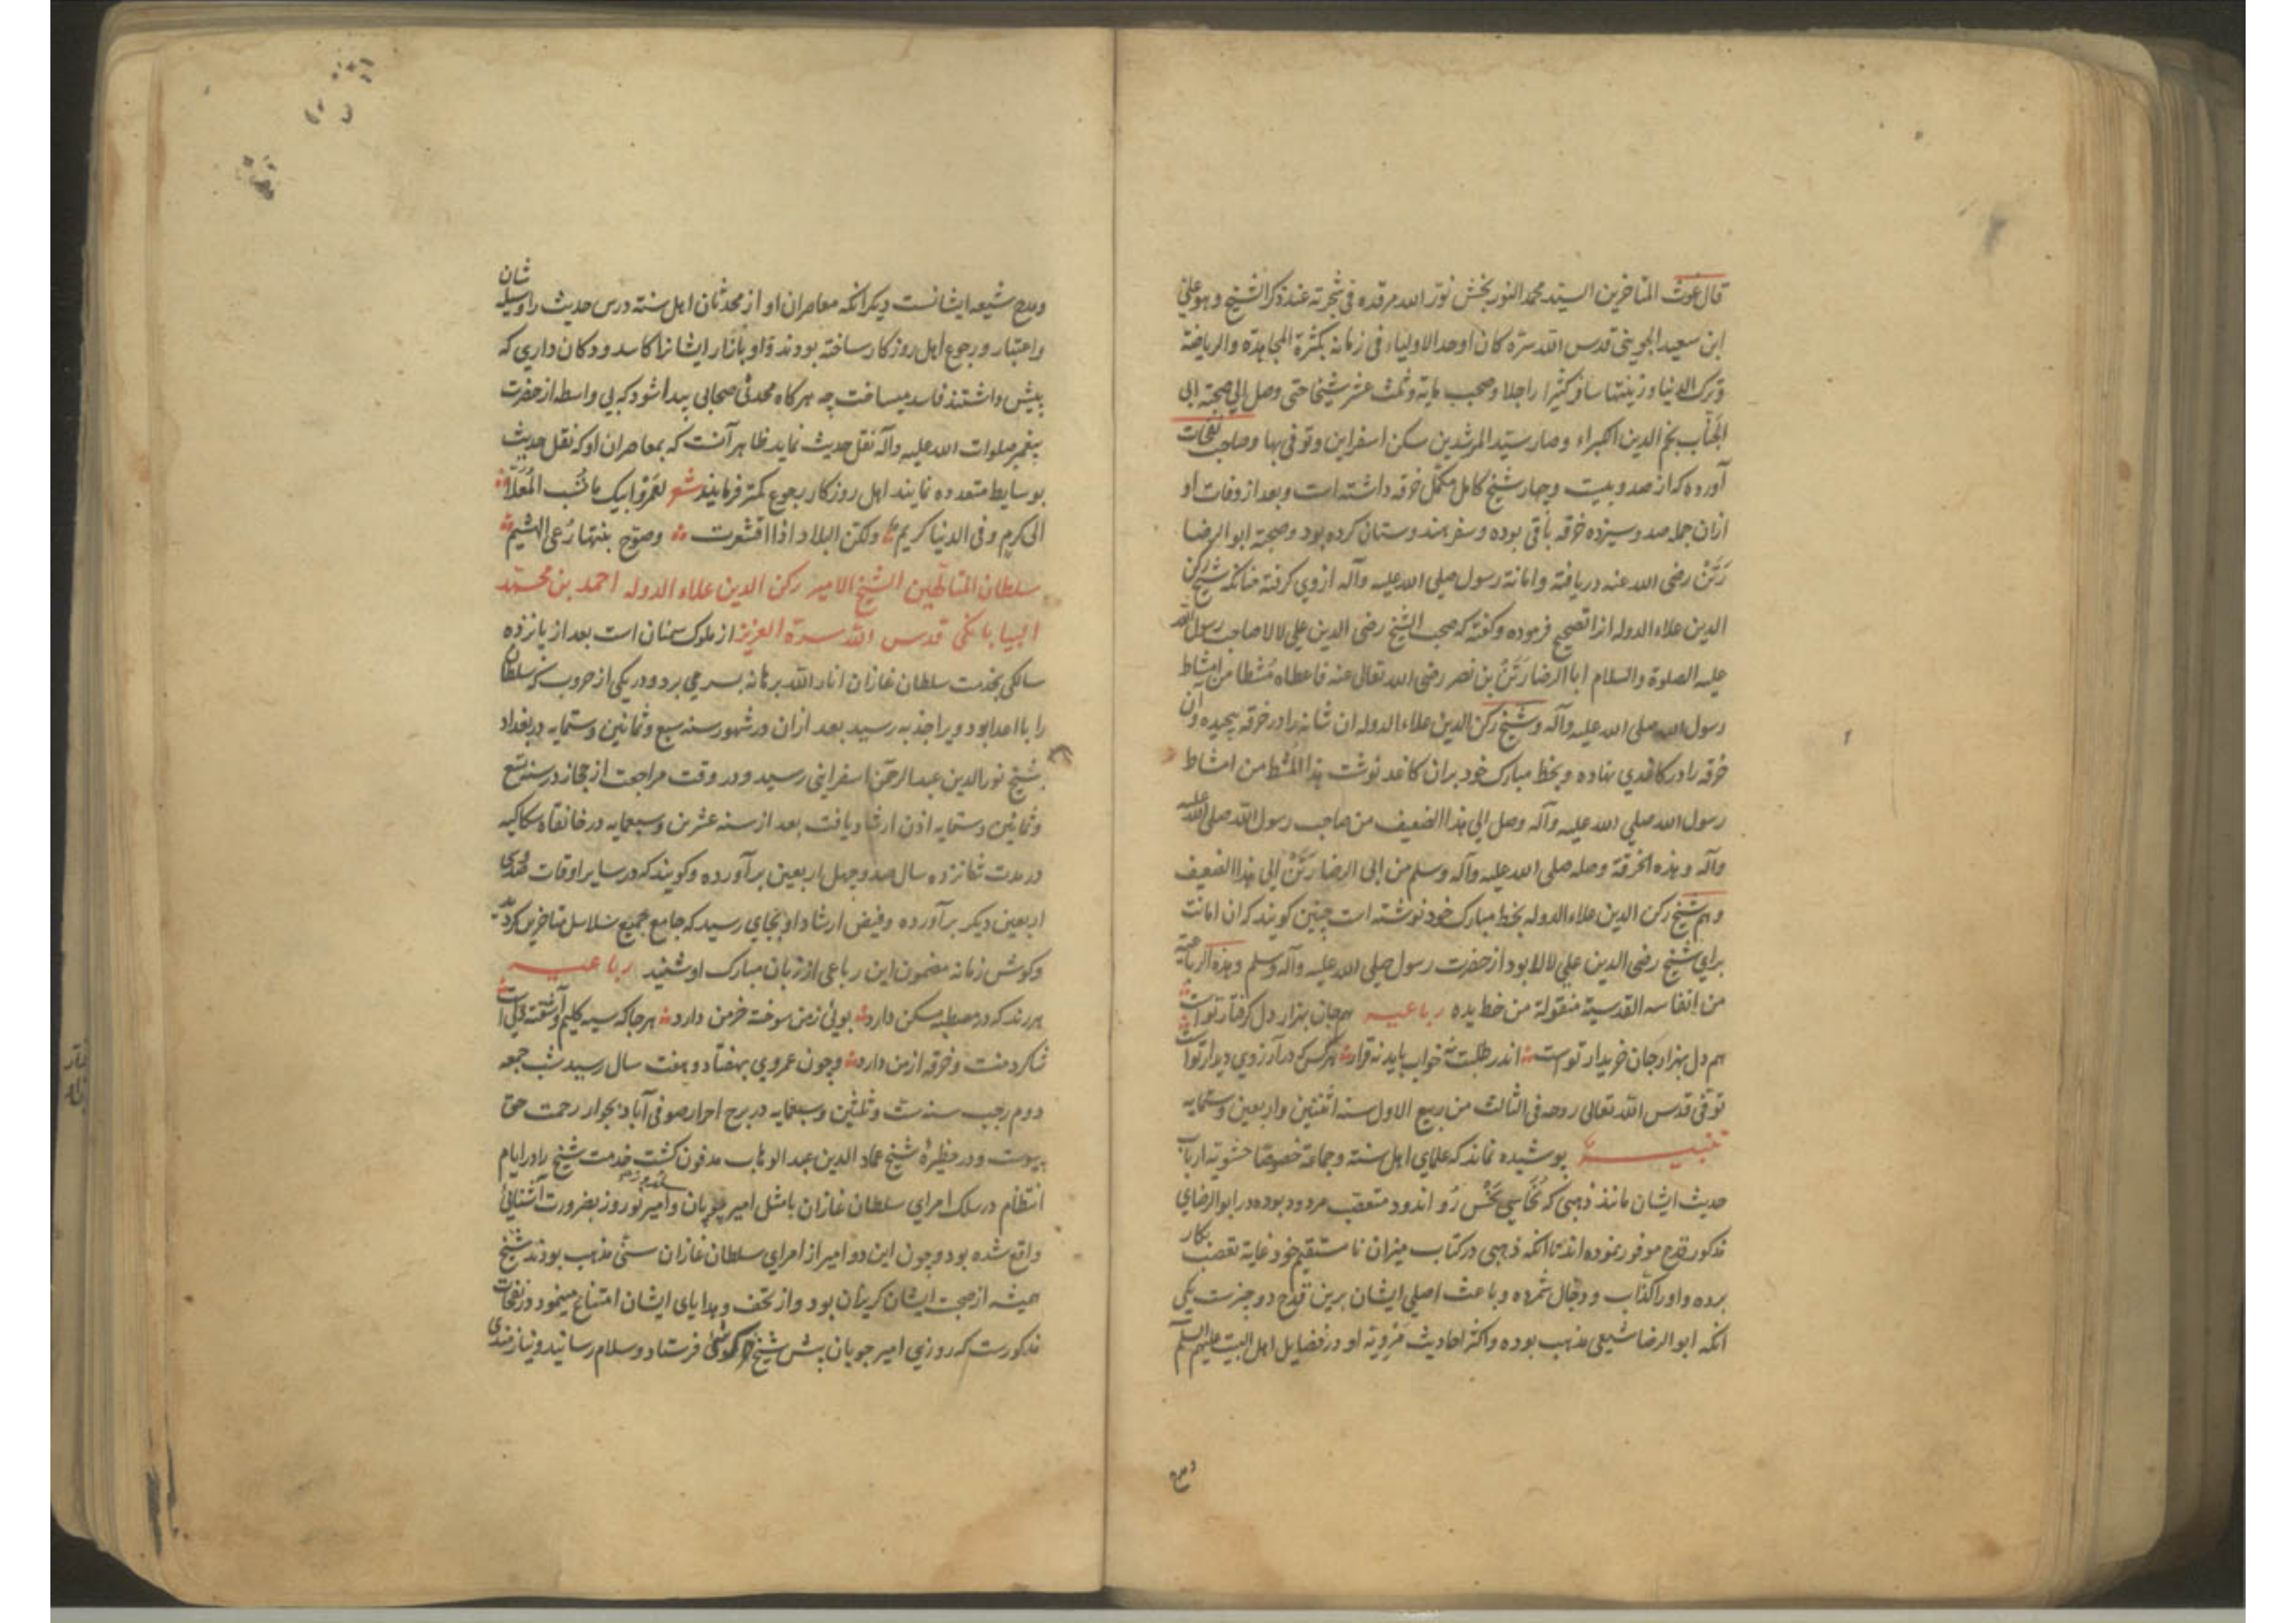 قال غوث المتاخرین السید محمد النوربخش نور الله مرقده فی شجرته عند ذکر الشیخ وهو علی
ابن سعید الجوینی قدس الله سره کان اوحد الاولیاء فی زمانه بکثرة المجاهدة والریاضة
وترک الدنیا وزینتها سافر کثیرا راجلا وصحب مایة وثلث عشر شیخا حتی وصل الی صحبة ابی
الجناب نجم الدین الکبراء وصار سید المرشدین سکن اسفراین وتوفی بها وصاحب نفحات
آورده که از صد و بیست و چهار شیخ کامل مکمل خرقه داشته است و بعد از وفات او
ازان جمله صد و سیزده خرقه باقی بوده و سفر هندوستان کرده بود و صحبة ابو الرضا
رتن رضی الله عنه دریافته و امانة رسول صلی الله علیه وآله از وی کرفته چنانکه شیخ رکن
الدین علاء الدوله انرا تصحیح فرموده و کفته که صحب الشیخ رضی الدین علی لالا صاحب رسول الله
علیه الصلوة والسلام ابا الرضا رتن بن نصر رضی الله تعالی عنه فاعطاه مشطا من امشاط
رسول الله صلی الله علیه وآله و شیخ رکن الدین علاء الدوله ان شانه را در خرقه پیچیده و آن
خرقه را در کاغدی نهاده و بخط مبارک خود بران کاغد نوشت هذا المشط من امشاط
رسول الله صلی الله علیه وآله وصل الی هذا الضعیف من صاحب رسول الله صلی الله علیه
وآله وهذه الخرقة وصله صلی الله علیه وآله وسلم من ابی الرضا رتن الی هذا الضعیف
و هم شیخ رکن الدین علاء الدوله بخط مبارک خود نوشته است چنین کویند که ان امانت
برای شیخ رضی الدین علی لالا بود از حضرت رسول صلی الله علیه وآله وسلم وهذه الرباعیة
من انفاسه القدسیة منقولة من خط یده رباعیه هم جان بهزار دل کرفتار تو است
هم دل بهزار جان خریدار تو است اندر طلبت نه خواب یابد نه قرار هر کس که در آرزوی دیدار تو است
توفی قدس الله تعالی روحه فی الثالث من ربیع الاول سنه اثنتین واربعین وستمایه
تنبیه پوشیده نماند که علمای اهل سنة و جماعة خصوصا حشویه ارباب
حدیث ایشان مانند ذهبی که نحاسی نحس زر اندود متعصب مردود بوده در ابو الرضای
مذکور قدح موفور نموده اند تا انکه ذهبی در کتاب میزان نا مستقیم خود غایة تعصب بکار
برده و او را کذاب و دجال شمرده و باعث اصلی ایشان برین قدح دو چیزست یکی
انکه ابو الرضا شیعی مذهب بوده و اکثر احادیث مرویه او در فضایل اهل البیت علیهم السلم
ومدح
ومدح شیعه ایشانست دیکر انکه معاصران او از محدثان اهل سنة درس حدیث را وسیله شان
واعتبار و رجوع اهل روزکار ساخته بودند و او بازار ایشانرا کاسد و دکان داری که
پیش داشتند فاسد میساخت چه هرکاه محدثی صحابی پیدا شود که بی واسطه از حضرت
پیغمبر صلوات الله علیه وآله نقل حدیث نماید ظاهر آنست که بمعاصران او که نقل حدیث
بوسایط متعدده نمایند اهل روزکار رجوع کمتر فرمایند شعر لعمر ابیک ما نسب المعلا
الی کرم وفی الدنیا کریم ولکن البلاد اذا اقشعرت وصوح بنتها رعی الهشیم
سلطان المتالهین الشیخ الامیر رکن الدین علاء الدوله احمد بن محمد
البیابانکی قدس الله سره العزیز از ملوک سمنان است بعد از پانزده
سالکی بخدمت سلطان غازان انار الله برهانه بسر می برد و در یکی از حروب که سلطان
را با اعدا بود ویرا جذبه رسید بعد ازان در شهور سنه سبع وثمانین وستمایه در بغداد
بشیخ نور الدین عبد الرحمن اسفراینی رسید و در وقت مراجعت از حجاز در سنه تسع
وثمانین وستمایه اذن ارشاد یافت بعد از سنه عشرین وسبعمایه در خانقاه سکاکیه
در مدت شانزده سال صد و چهل اربعین برآورده و کویند که در سایر اوقات صد و سی
اربعین دیکر برآورده و فیض ارشاد او بجای رسید که جامع جمیع سلاسل متاخرین کردید
وکوش زمانه مضمون این رباعی از زبان مبارک او شنید رباعیه
هر رند که در مصطبه مسکن دارد بوئی ز من سوخته خرمن دارد هر جا که سیه کلیم و آشفته دلی است
شاکرد منست و خرقه از من دارد و چون عمر وی بهفتاد و هفت سال رسید شب جمعه
دوم رجب سنه ست وثلثین وسبعمایه در برج احرار صوفی آباد بجوار رحمت حق
پیوست و در حظیرهٔ شیخ عماد الدین عبد الوهاب مدفون کشت خدمت شیخ را در ایام
انتظام در سلک امرای سلطان غازان با مثل امیر چوپان و امیر نوروز بضرورت آشنائی
واقع شده بود و چون این دو امیر از امرای سلطان غازان سنی مذهب بودند شیخ
همیشه از صحبت ایشان کریزان بود و از تحف و هدایای ایشان امتناع مینمود در نفحات
مذکورست که روزی امیر چوپان پیش شیخ فرستاد و سلام رسانید و نیازمندی